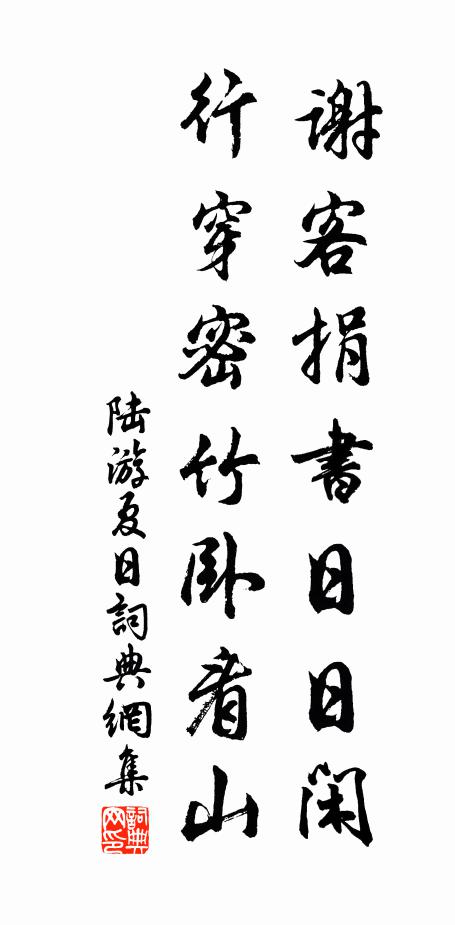 謝客捐書日日閑
行穿密竹卧看山
陆游夏日詞典網集
詞典网印